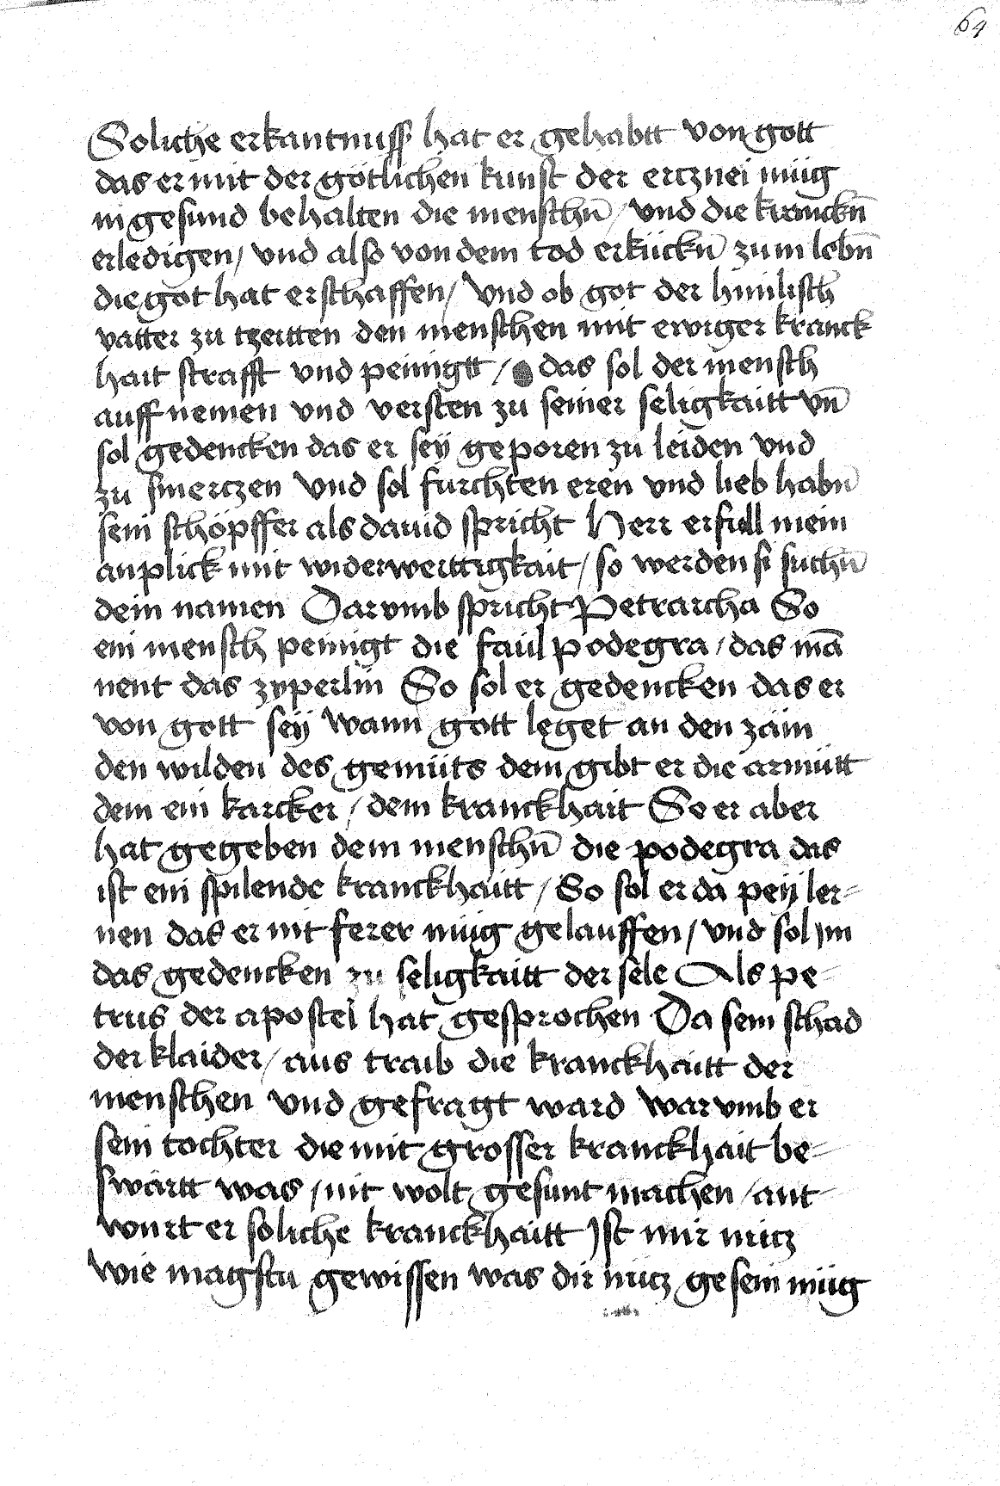 64
Soliche erkantnuss hat er gehabtt von gott
das er mit der götlichen kunst der ercznei müg
in gesund behalten die menschn̄ / vnd die kranckn̄
erledigen / vnd also von dem tod erkückn̄ zum lebn̄
die got hat erschaffen / Vnd ob got der himlisch
vatter zu tzeitten den menschen mit ewiger kranck
hait strafft vnd peinigtt / das sol der mensch
auff nemen vnd versten zu seiner seligkaitt vn̄
sol gedencken das er seÿ geporen zu leiden vnd
zu smerczen Vnd sol furchten eren vnd lieb habn̄
sein schöpffer als dauid spricht Herr erfull mein
anplick mit widerwerttigkait / so werden si suchn̄
dein namen Darvmb spricht Petrarcha So
ein mensch peinigt die faül podegra / das mā
nent das zyperlin So sol er gedencken das er
von gott seÿ Wann gott leget an den zäm
den wilden des gemüts dem gibt er die armütt
dem ein karcker / dem kranckhait So er aber
hat gegeben dem menschn̄ die podegra das
ist ein spilende kranckhaitt / So sol er da peÿ ler-
nen das er nit ferer müg gelauffen / vnd sol im
das gedencken zu seligkaitt der sele Als pe-
trus der apostel hat gesprochen Da sein schad
der klaider / aus traib die kranckhaitt der
menschen vnd gefragt ward warvmb er
sein tochter die mit grosser kranckhait be-
swärtt was / nit wolt gesunt machen / ant
wurt er soliche kranckhaitt Ist mir nücz
wie magstu gewissen was dir nücz gesein müg